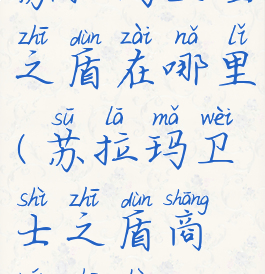 zhī dùn zài nǎ lǐ
之盾在哪里
sū lā mǎ wèi
(苏拉玛卫
shì zhī dùn shāng
士之盾商